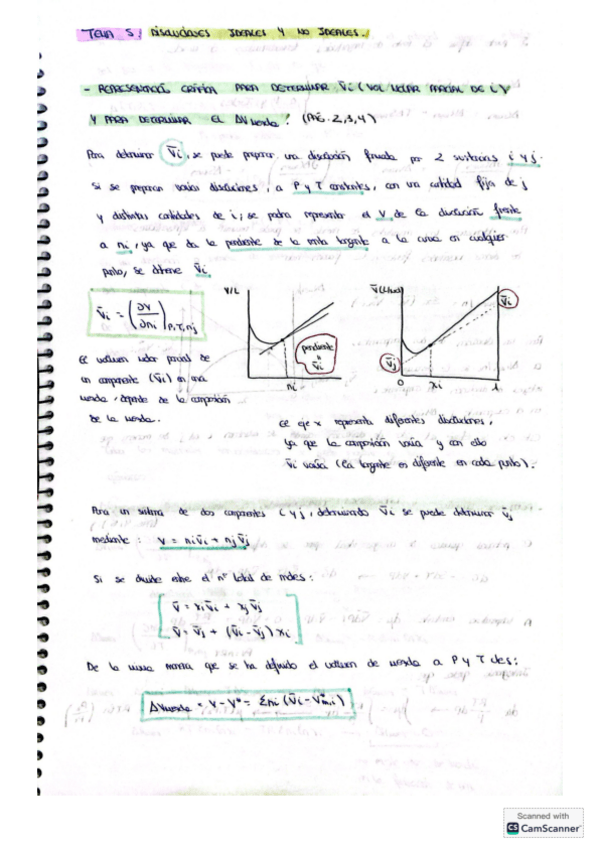 TEMA 5: DISOLUCIONES IDEALES Y NO IDEALES.
- REPRESENTACIÓN GRÁFICA PARA DETERMINAR V̄i (VOL. MOLAR PARCIAL DE i)
Y PARA DETERMINAR EL ΔVmezcla: (PÁG. 2,3,4)
Para determinar V̄i, se puede preparar una disolución formada por 2 sustancias i y j.
Si se preparan varias disoluciones, a P y T constantes, con una cantidad fija de j
y distintas cantidades de i, se podrá representar el V de la disolución frente
a ni, ya que da la pendiente de la recta tangente a la curva en cualquier
punto, se obtiene V̄i.
V̄i = (∂V/∂ni)P,T,nj
V/L
pendiente
=
V̄i
ni
V̄(L/mol)
V̄i
V̄j
0 xi 1
El volumen molar parcial de
un componente (V̄i) en una
mezcla, depende de la composición
de la mezcla.
El eje x representa diferentes disoluciones,
ya que la composición varía y con ello
V̄i varía (la tangente es diferente en cada punto).
Para un sistema de dos componentes i y j, determinando V̄i se puede determinar V̄j
mediante: V = niV̄i + njV̄j
Si se divide entre el nº total de moles:
V̄ = xiV̄i + xjV̄j
V̄ = V̄j + (V̄i - V̄j) xi
De la misma manera que se ha definido el volumen de mezcla a P y T ctes:
ΔVmezcla = V - V* = Σni (V̄i - V*m,i)
Scanned with
CS CamScanner